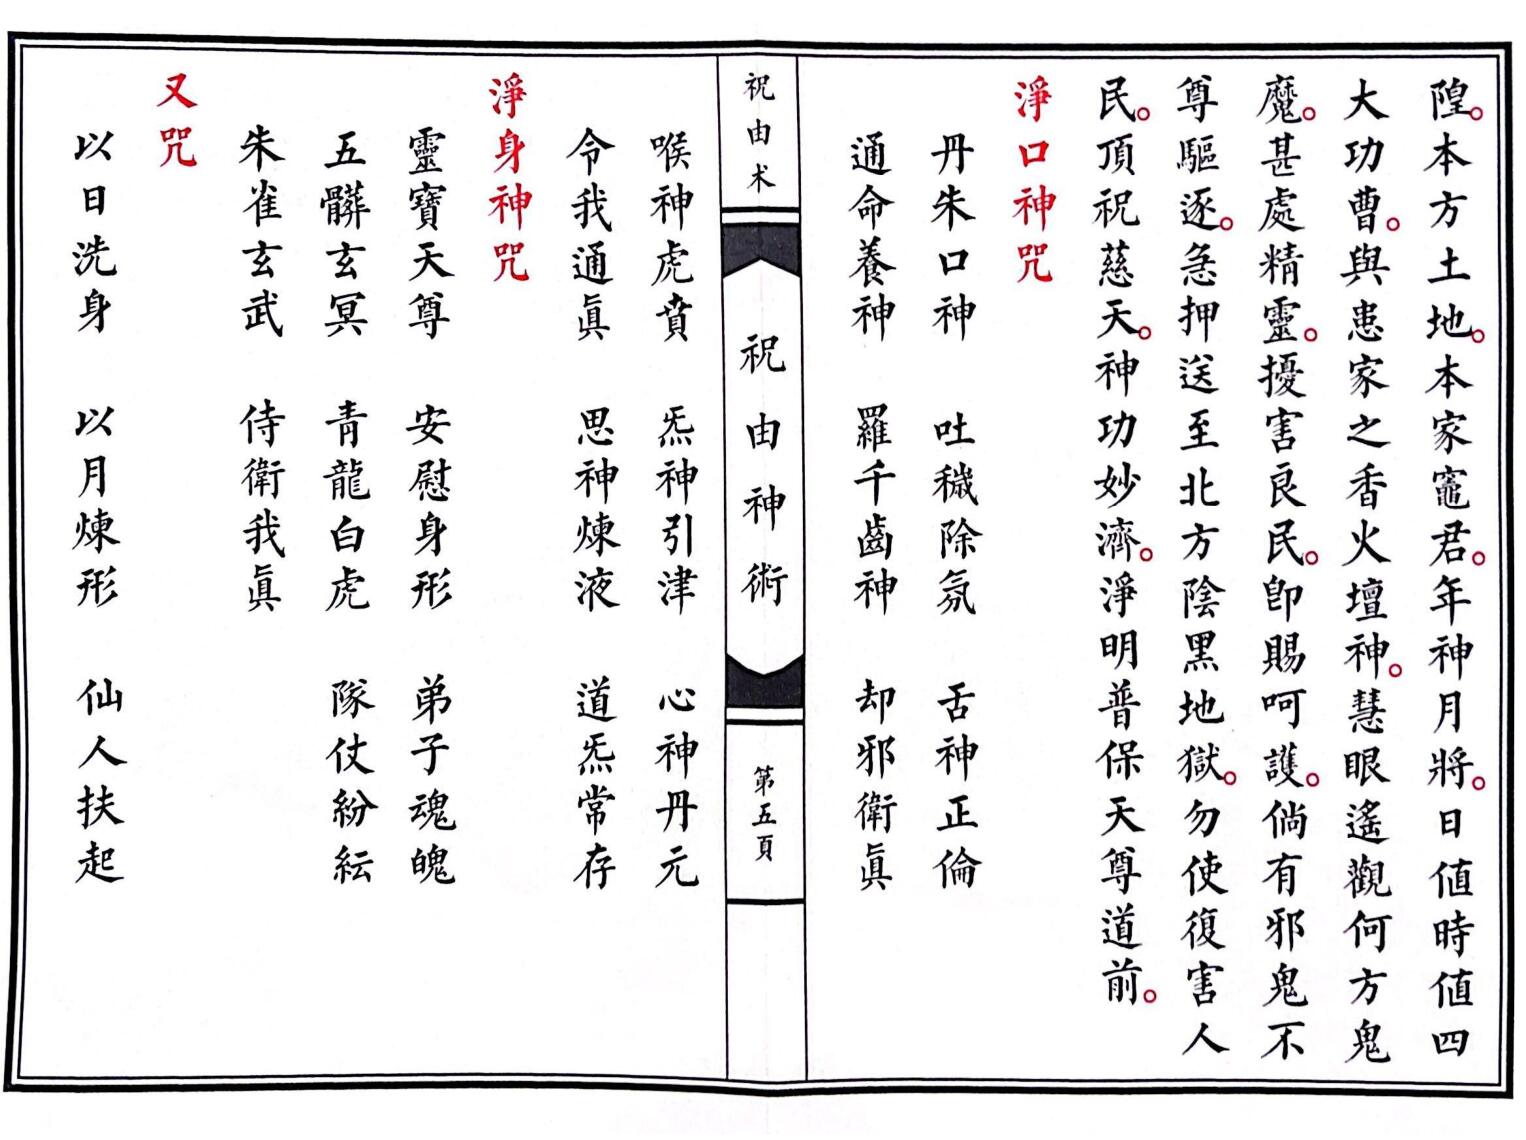 隍。本方土地。本家竈君。年神月將。日值時值四
大功曹。與患家之香火壇神。慧眼遙觀何方鬼
魔。甚處精靈。擾害良民。卽賜呵護。倘有邪鬼不
尊驅逐。急押送至北方陰黑地獄。勿使復害人
民。頂祝慈天。神功妙濟。淨明普保天尊道前。
淨口神咒
丹朱口神 吐穢除氛 舌神正倫
通命養神 羅千齒神 却邪衛眞
祝由术
祝由神術
第五頁
喉神虎賁 炁神引津 心神丹元
令我通眞 思神煉液 道炁常存
淨身神咒
靈寶天尊 安慰身形 弟子魂魄
五髒玄冥 青龍白虎 隊仗紛紜
朱雀玄武 侍衛我眞
又咒
以日洗身 以月煉形 仙人扶起